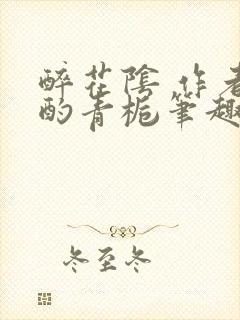 醉花陰 作者
酌青梔筆趣
冬至冬